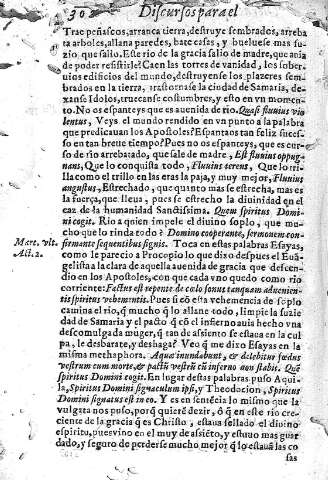 302 Discursos para el
Trac peñascos, arranca tierra, destruye sembrados, arreba
ta arboles, allana paredes, bate casas, y bueluese mas su-
zio que salio. Este rio de la gracia salio de madre, que auia
de poder resistirle? Caen las torres de vanidad, los sober-
uios edificios del mundo, destruyense los plazeres sem-
brados en la tierra, trastornase la ciudad de Samaria, de-
xanse Idolos, truecanse costumbres, y esto en vn momen-
to. No os espanteys que es auenida de rio. Quasi fluuius vio
lentus, Veys el mundo rendido en vn punto a la palabra
que predicauan los Apostoles? Espantaos tan feliz succes-
so en tan breue tiempo? Pues no os espanteys, que es cur-
so de rio arrebatado, que sale de madre, Est fluuius oppug-
nans, Que lo conquista todo, Fluuius terens, Que lo tri-
lla como el trillo en las eras la paja, y muy mejor, Fluuius
angustus, Estrechado, que quanto mas se estrecha, mas es
la fuerça, que lleua, pues se estrecho la diuinidad en el
caz de la humanidad Sanctissima. Quem spiritus Domi-
ni cogit. Rio a quien impele el diuino soplo, que mu-
cho que lo rinda todo? Domino cooperante, sermonem con-
Marc. vlt. firmante sequentibus signis. Toca en estas palabras Esayas,
Act. 2. como le parecio a Procopio lo que dixo despues el Eua-
gelista a la clara de aquella auenida de gracia que descen-
dio en los Apostoles, con que cada vno quedo como rio
corriente: Factus est repente de cœlo sonus tanquam aduenien-
tis spiritus vehementis. Pues si cõ esta vehemencia de soplo
camina el rio, q̃ mucho q̃ lo allane todo, limpie la suzie
dad de Samaria y el pacto q̃ cõ el infierno auia hecho vna
descomulgada muger, q̃ tan de assiento se estaua en la cul
pa, le desbarate, y deshaga? Veo q̃ me dizo Esayas en la
misma methaphora. Aquæ inundabunt, & delebitur fœdus
vestrum cum morte, & pactũ vestrũ cũ inferno non stabit. Quẽ
spiritus Domini cogit. En lugar destas palabras puso Aqui-
la, Spiritus Domini signaculum ipsi, y Theodocion, Spiritus
Domini signatus est in eo. Y es en sentẽcia lo mismo que la
vulgata nos puso, porq̃ quiere dezir, ò q̃ en este rio cre-
ciente de la gracia q̃ es Christo, estaua sellado el diuino
espiritu, pues vino en el muy de assiẽto, y estuuo mas guar
dado, y seguro de perderse mucho mejor q̃ lo estauã las co
sas